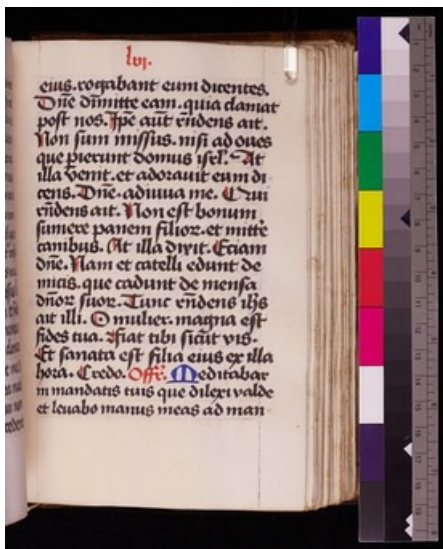 lvj.
eius. rogabant eum dicentes.
Dn̄e dimitte eam. quia clamat
post nos. Ip̄e aūt r̄ndens ait.
Non sum missus. nisi ad oues
que perierunt domus isrl̄. At
illa venit. et adorauit eum di
cens. Dn̄e. adiuua me. Qui
r̄ndens ait. Non est bonum
sumere panem filior. et mitte
canibus. At illa dixit. Eciam
dn̄e. Nam et catelli edunt de
micis. que cadunt de mensa
dn̄or suor. Tunc r̄ndens ihs
ait illi. O mulier. magna est
fides tua. Fiat tibi sicut vis.
Et sanata est filia eius ex illa
hora. Credo. Offr̄. Meditabar
in mandatis tuis que dilexi valde
et leuabo manus meas ad man